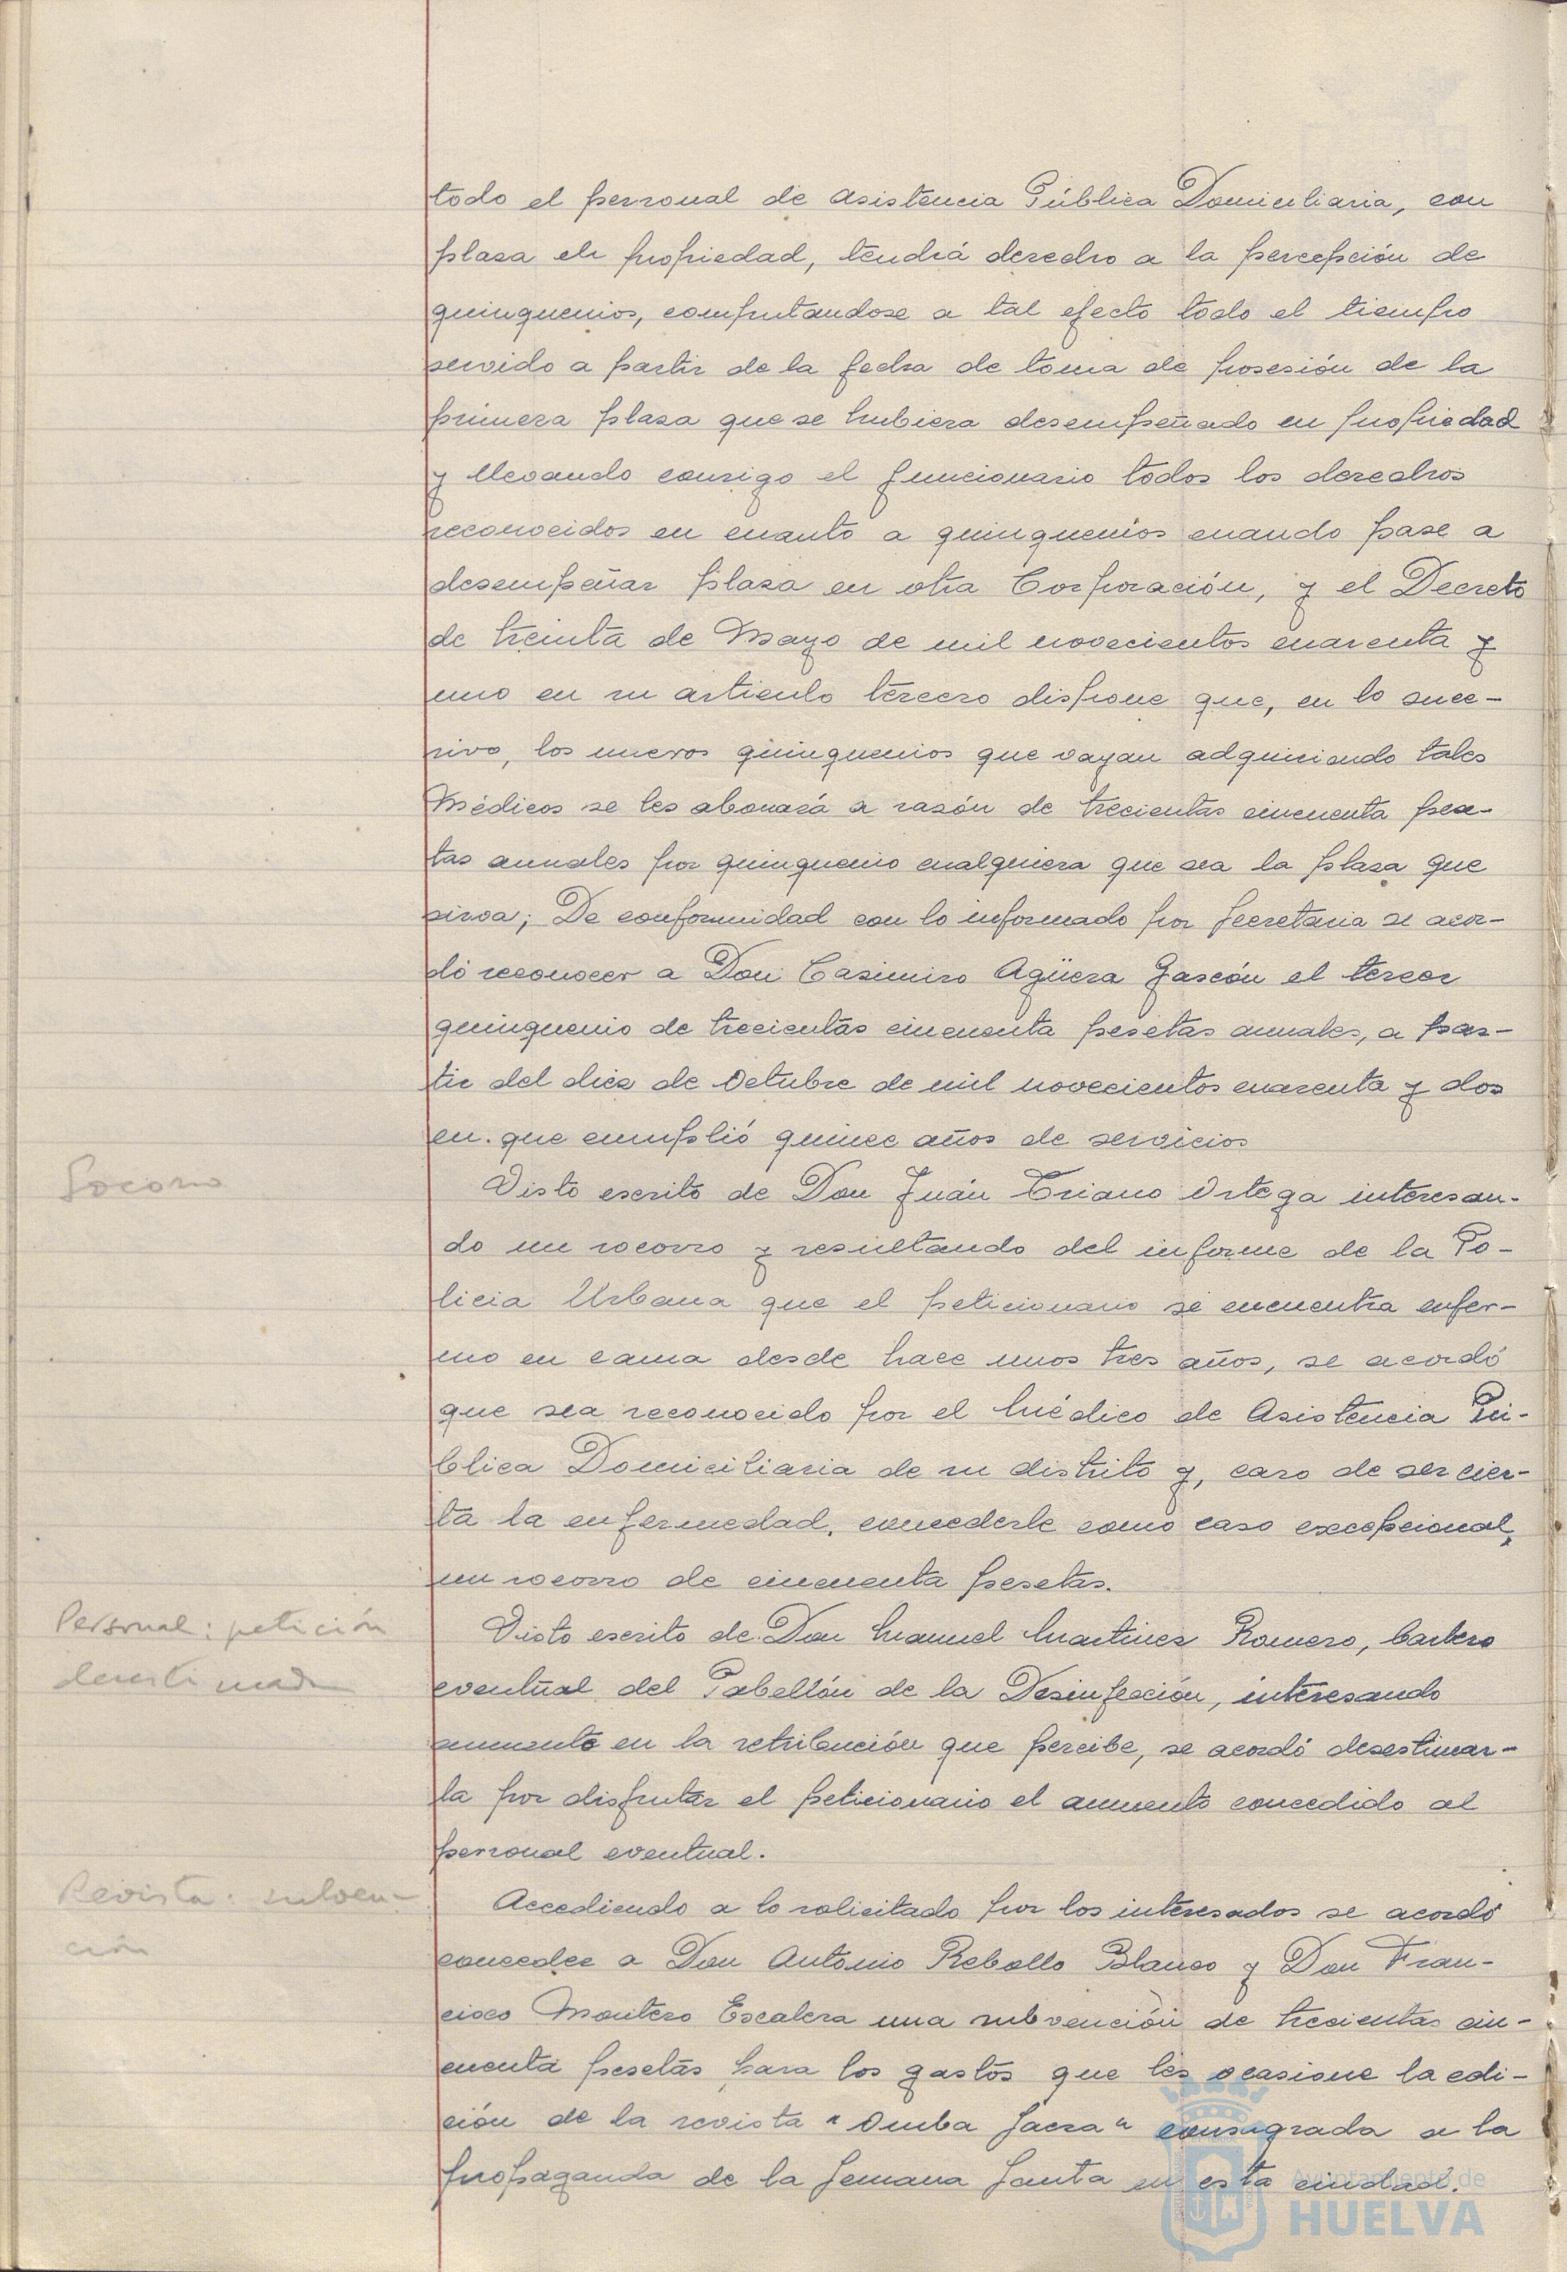 todo el personal de asistencia Pública Domiciliaria, con
plaza en propiedad, tendrá derecho a la percepción de
quinquenios, computandose a tal efecto todo el tiempo
servido a partir de la fecha de toma de posesión de la
primera plaza que se hubiera desempeñado en propiedad
y llevando consigo el funcionario todos los derechos
reconocidos en cuanto a quinquenios cuando pase a
desempeñar plaza en otra Corporación, y el Decreto
de treinta de Mayo de mil novecientos cuarenta y
uno en su articulo tercero dispone que, en lo suce-
sivo, los nuevos quinquenios que vayan adquiriendo tales
Médicos se les abonará a razón de trecientas cincuenta pese-
tas anuales por quinquenio cualquiera que sea la plaza que
sirva; De conformidad con lo informado por Secretaria se acor-
dó reconocer a Don Casimiro Agüera Gascón el tercer
quinquenio de trecientas cincuenta pesetas anuales, a par-
tir del diez de Octubre de mil novecientos cuarenta y dos
en que cumplió quince años de servicios
Socorro
Visto escrito de Don Juán Triano Ortega interesan-
do un socorro y resultando del informe de la Po-
licia Urbana que el peticionario se encuentra enfer-
mo en cama desde hace unos tres años, se acordó
que sea reconocido por el Médico de Asistencia Pú-
blica Domiciliaria de su distrito y, caso de ser cier-
ta la enfermedad, concederle como caso excepcional,
un socorro de cincuenta pesetas.
Personal: petición
desestimada
Visto escrito de Don Manuel Martinez Romero, barbero
eventual del Pabellón de la Desinfección, interesando
aumento en la retribución que percibe, se acordó desestimar-
la por disfrutar el peticionario el aumento concedido al
personal eventual.
Revista: subven-
ción
Accediendo a lo solicitado por los interesados se acordó
conceder a Don Antonio Rebollo Blanco y Don Fran-
cisco Montero Escalera una subvención de trecientas cin-
cuenta pesetas para los gastos que les ocasione la edi-
ción de la revista "Onuba Sacra" consagrada a la
propaganda de la Semana Santa en esta ciudad.
Ayuntamiento de
HUELVA